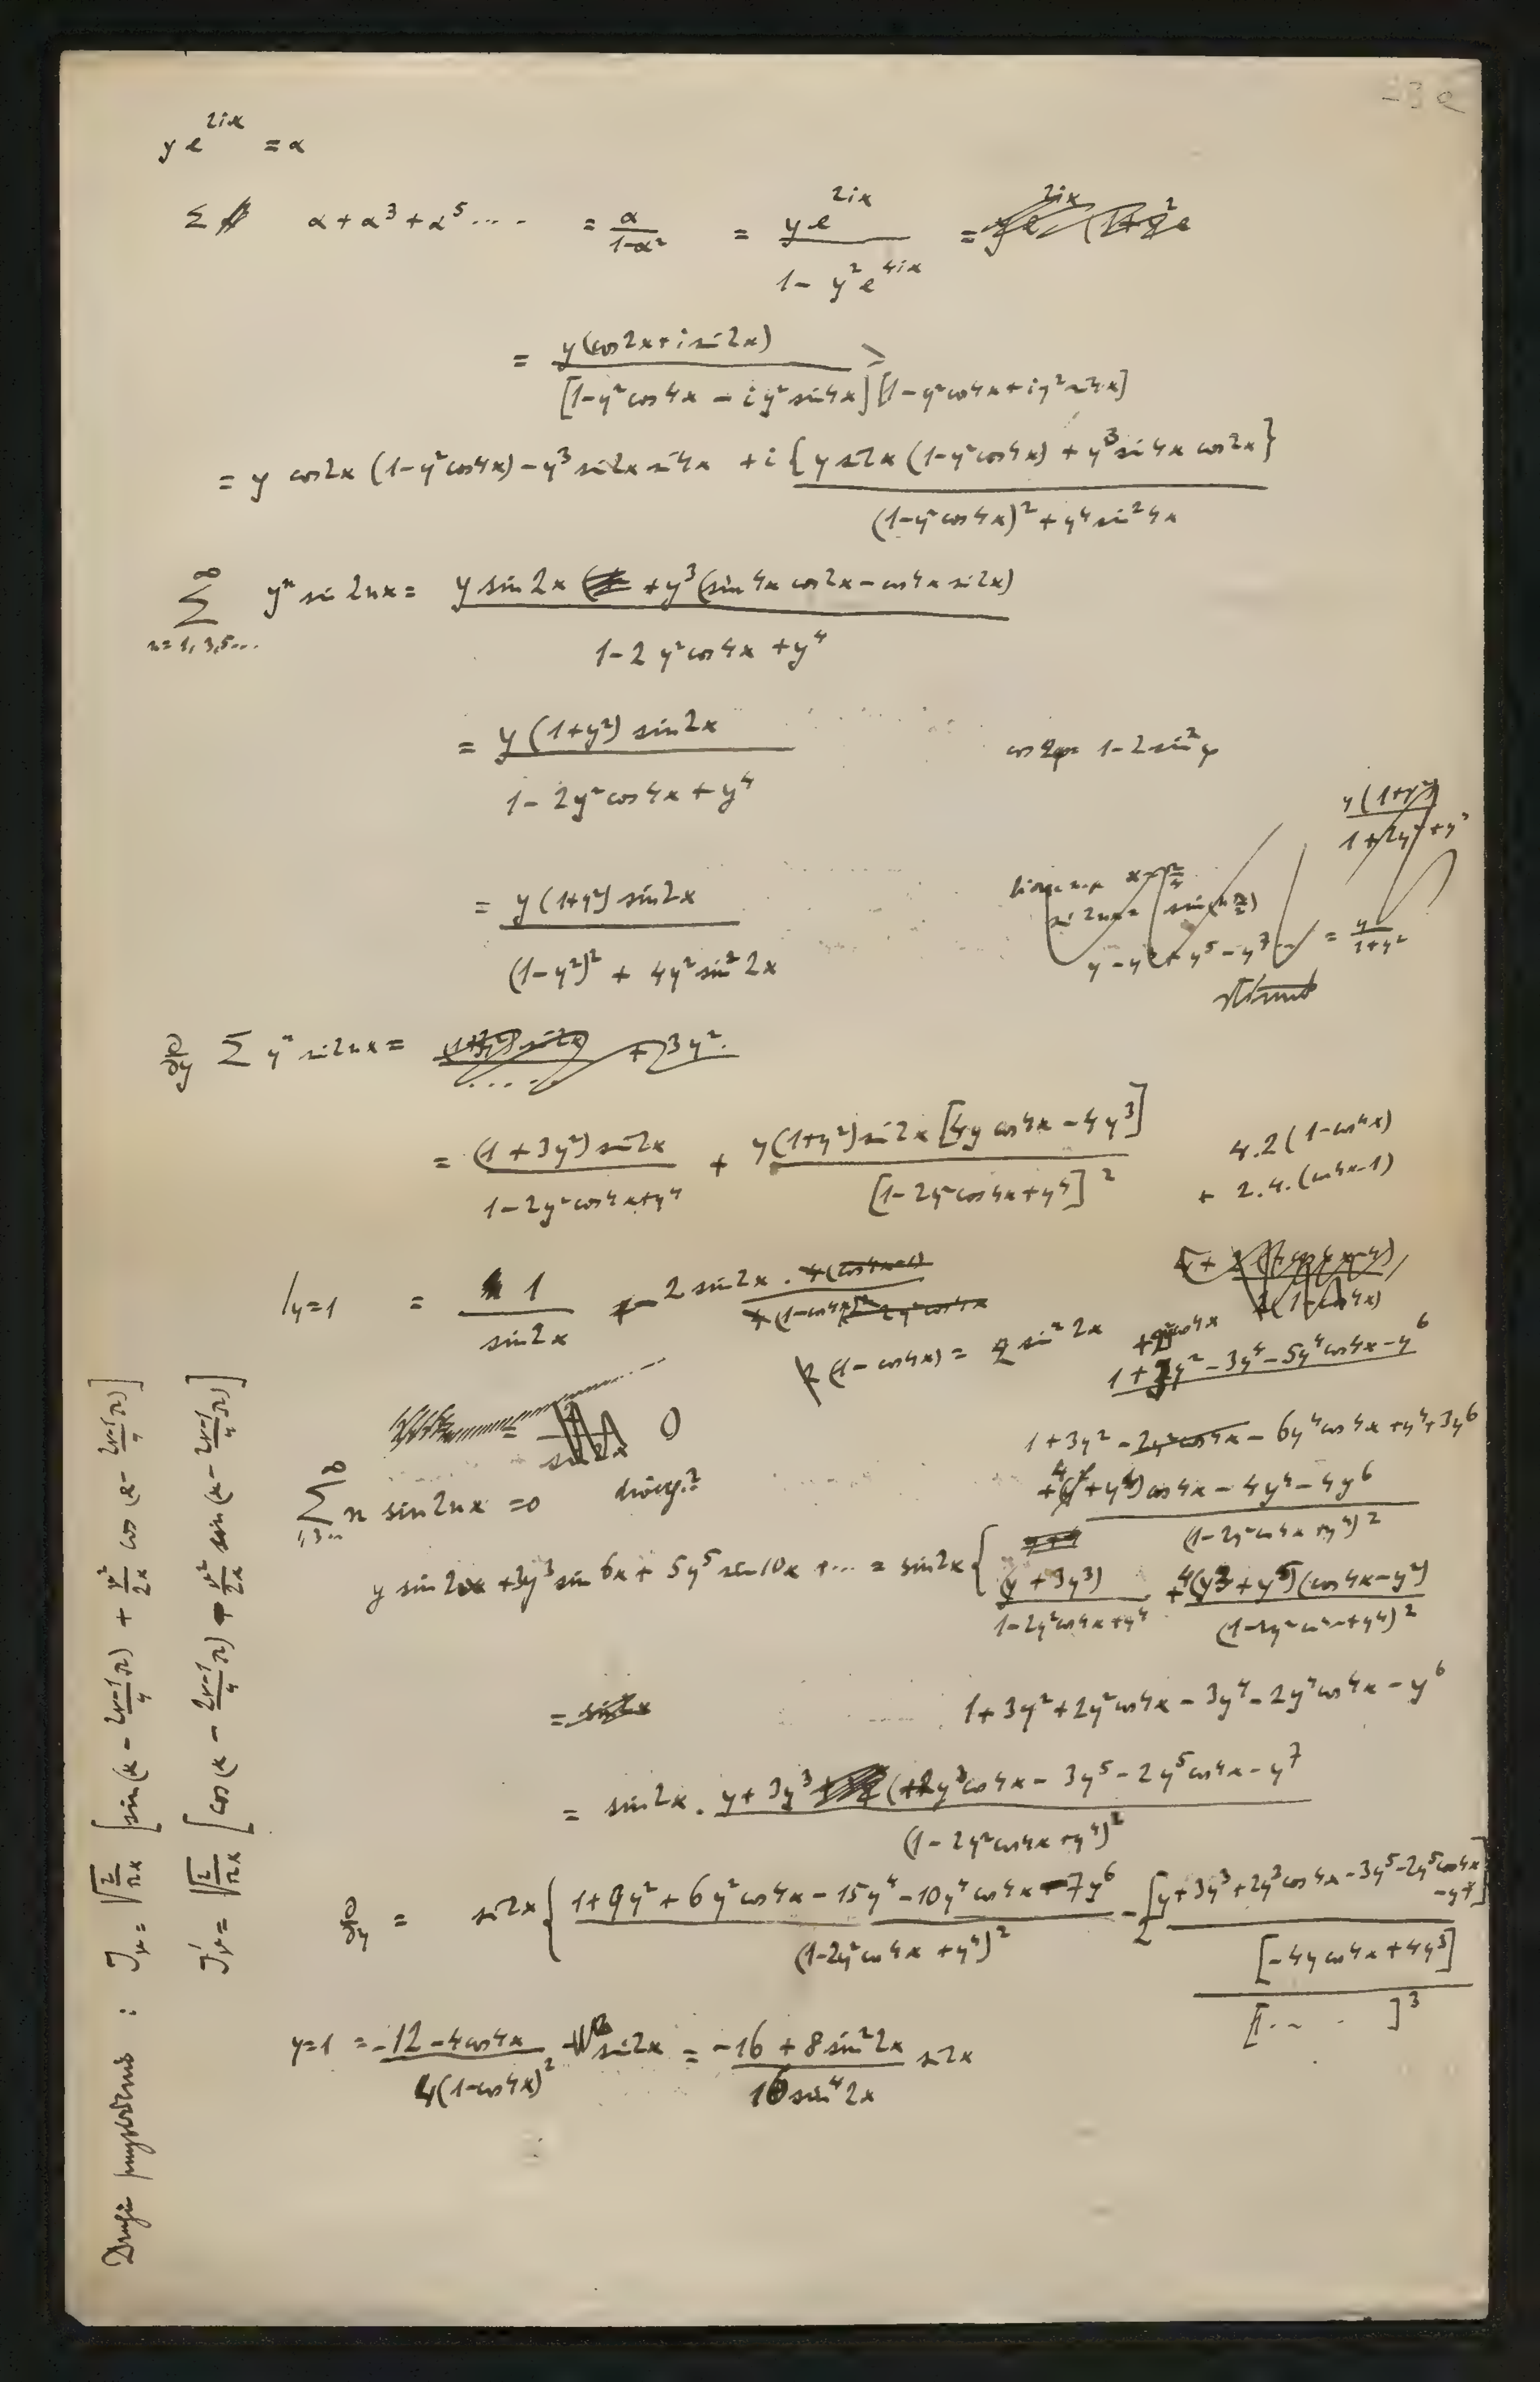 y e^{2ix} = α
Σ α + α³ + α⁵ .... = α/(1-α²) = y e^{2ix} / (1 - y² e^{4ix}) =
= y(cos2x + i sin2x) / [1-y²cos4x - i y² sin4x] [1-y²cos4x + i y² sin4x]
= y cos2x (1-y²cos4x) - y³ sin2x sin4x + i {y sin2x (1-y²cos4x) + y³ sin4x cos2x} / (1-y²cos4x)² + y⁴ sin²4x
∑_{n=1,3,5...}^{∞} yⁿ sin 2nx = y sin2x + y³(sin4x cos2x - cos4x sin2x) / 1 - 2y²cos4x + y⁴
= y(1+y²) sin2x / 1 - 2y²cos4x + y⁴
cos2φ = 1-2sin²φ
y(1+y²) / 1+2y²+y⁴
= y(1+y²) sin2x / (1-y²)² + 4y² sin²2x
x=π/4
sin2nx = sin(nπ/2)
y - y³ + y⁵ - y⁷ = y/(1+y²)
∂/∂y Σ yⁿ sin2nx =
= (1+3y²) sin2x / 1-2y²cos4x+y⁴ + y(1+y²) sin2x [4y cos4x - 4y³] / [1-2y²cos4x+y⁴]²
4.2(1-cos4x)
+ 2.4.(cos4x-1)
/y=1 = 1/sin2x - 2 sin2x .
(1-cos4x) = 2 sin²2x
1+3y² - 3y⁴ - 5y⁴cos4x - y⁶
0
1+3y² - 2y²cos4x - 6y⁴cos4x + y⁴ + 3y⁶
∑_{1,3..}^{∞} n sin2nx = 0 diverg.?
+4(y²+y⁴)cos4x - 4y⁴ - 4y⁶ / (1-2y²cos4x+y⁴)²
y sin2x + 3y³ sin6x + 5y⁵ sin10x + ... = sin2x { (y+3y³) / 1-2y²cos4x+y⁴ + 4(y³+y⁵)(cos4x-y²) / (1-2y²cos4x+y⁴)²
= sin2x
1+3y²+2y²cos4x - 3y⁴ - 2y⁴cos4x - y⁶
= sin2x . y + 3y³ + 2y³cos4x - 3y⁵ - 2y⁵cos4x - y⁷ / (1-2y²cos4x+y⁴)²
∂/∂y = sin2x { 1+9y² + 6y²cos4x - 15y⁴ - 10y⁴cos4x - 7y⁶ / (1-2y²cos4x+y⁴)² - 2 [y+3y³+2y³cos4x-3y⁵-2y⁵cos4x-y⁷] [-4y cos4x + 4y³] / [1.. . ]³
y=1 = -12-4cos4x / 4(1-cos4x)² sin2x = -16 + 8 sin²2x / 16 sin⁴2x sin2x
: J_ν = √(2/πx) [sin(x - (2ν-1)/4 π) + ν²/2x cos(x - (2ν-1)/4 π)]
J'_ν = √(2/πx) [cos(x - (2ν-1)/4 π) - ν²/2x sin(x - (2ν-1)/4 π)]